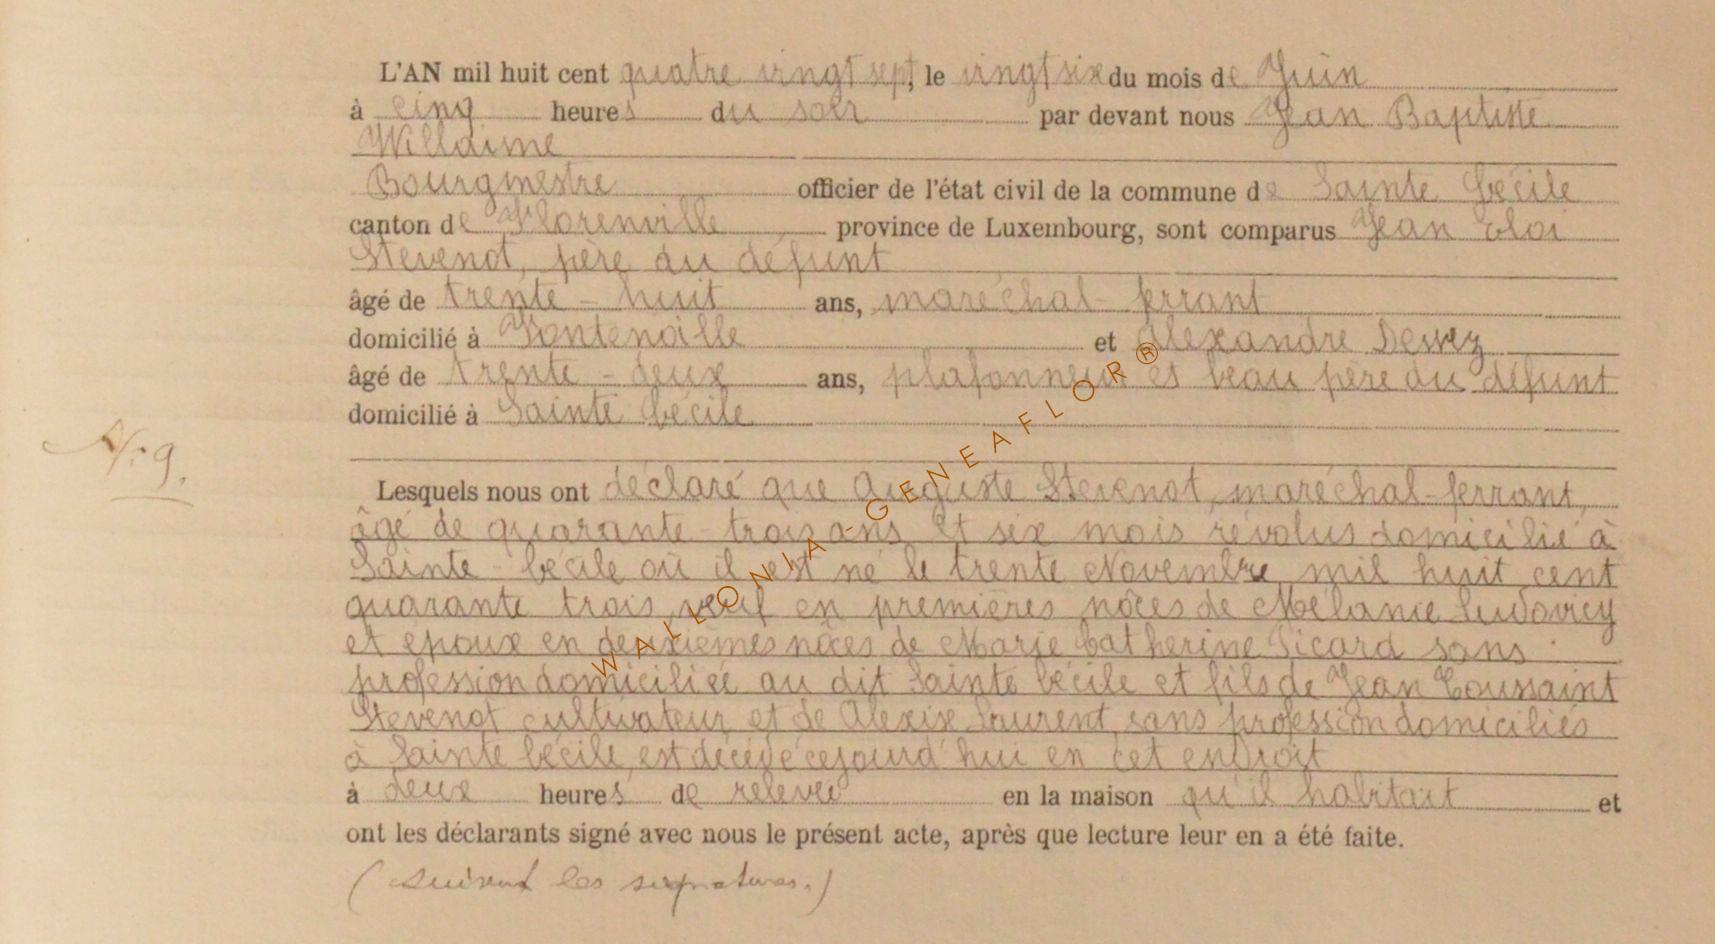 L'AN mil huit cent quatre vingt sept, le vingt six du mois de Juin
à cinq heures du soir par devant nous Jean Baptiste
Willaime
Bourgmestre officier de l'état civil de la commune de Sainte Cécile
canton de Florenville province de Luxembourg, sont comparus Jean Eloi
Stevenot, père du défunt
âgé de trente-huit ans, maréchal-ferrant
domicilié à Fontenoille et Alexandre Dessez
âgé de trente-deux ans, plafonneur et beau père du défunt
domicilié à Sainte Cécile
Nº 9.
Lesquels nous ont déclaré que Auguste Stevenot, maréchal-ferrant,
âgé de quarante-trois ans et six mois révolus domicilié à
Sainte-Cécile où il est né le trente Novembre mil huit cent
quarante trois, veuf en premières nôces de Mélanie Ludovicy
et époux en deuxièmes nôces de Marie Catherine Sicard sans
profession domiciliée au dit Sainte Cécile et fils de Jean Toussaint
Stevenot cultivateur et de Alexise Laurent, sans profession domiciliés
à Sainte Cécile, est décédé cejourd'hui en cet endroit
à deux heures de relevée en la maison qu'il habitait et
ont les déclarants signé avec nous le présent acte, après que lecture leur en a été faite.
(suivent les signatures.)
WALLONIA-GENEAFLOR®